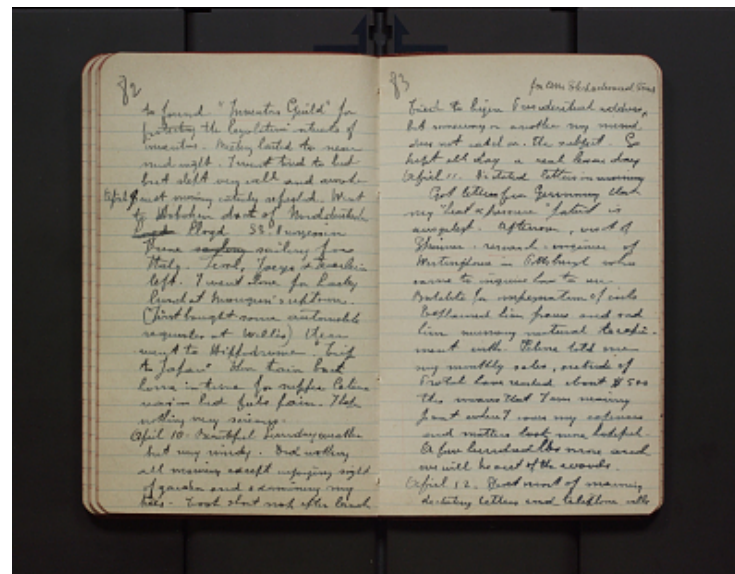 82
to found "Inventors Guild" for
protecting the legislative interests of
inventors. Meeting lasted to near
mid night. I went tired to bed
but slept very well and awoke
April 9 next morning entirely refreshed. Went
to Hoboken dock of Norddeutsche
Lloyd SS.
sailing for
Italy.
left. I went alone for hasty
lunch at
(First bought some automobile
requisites at Wallis) Then
went to Hippodrome. "Trip
to Japan" Then train back
home in time for supper Celine
was in bed feels pain. Hope
nothing very serious.
April 10. Beautiful Sunday weather
but very windy. Did nothing
all morning except enjoying sight
of garden and examining my
trees. Took short nap after lunch
83
Tried to begin Presidential address,
but someway or another my mind
does not catch on the subject. So
kept all day a real
April 11. Dictated letters in morning
Got letter from Germany that
my "heat & pressure" patent is
accepted. Afternoon, visit of
research engineer of
Westinghouse in Pittsburgh who
came to inquire how to use
Bakelite for impregnation of coils
Explained him process and sold
him necessary material to experi-
ment with. told me
my monthly sales, outside of
have reached about $500
this means that I am nearing
point where I cover my expenses
and matters look more hopeful.
A few hundred lbs more and
we will be out of the woods.
April 12. Spent most of morning
dictating letters and telephone calls